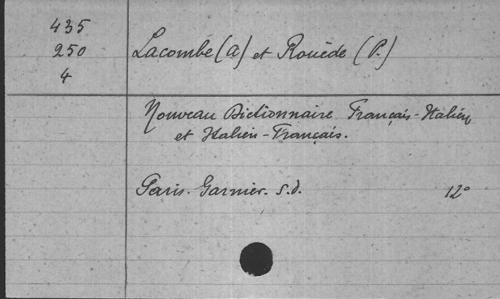 435
250
4
Lacombe (A) et Rouède (P.)
Nouveau Dictionnaire Français-Italien
et Italien-Français.
Paris. Garnier. s.d. 12°